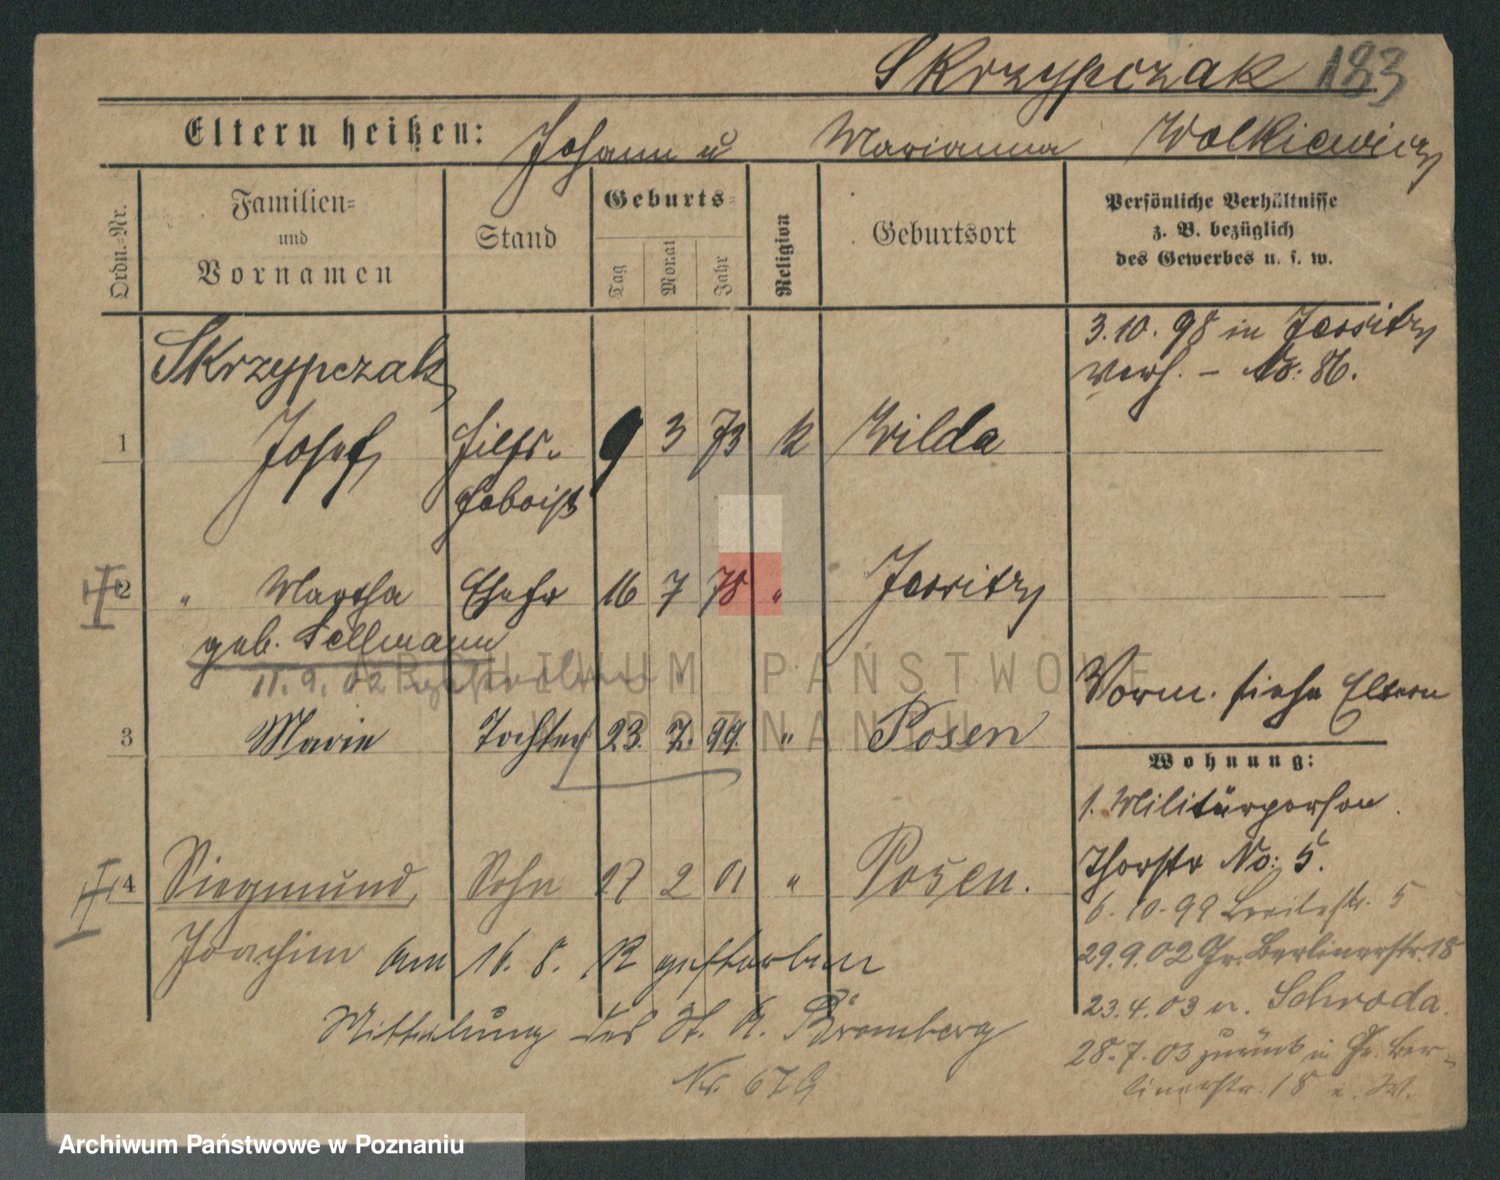 Skrzypczak 183
Eltern heißen: Johann u Marianna Wolkiewicz
Ordn.-Nr.
Familien-
und
Vornamen
Stand
Geburts-
Tag
Monat
Jahr
Religion
Geburtsort
Persönliche Verhältnisse
z. B. bezüglich
des Gewerbes u. s. w.
3.10.98 in Jersitz
verh. – No: 86.
Skrzypczak,
1 Josef Hilfs- 9 3 73 k Wilda
hoboist
2 " Martha Ehefr 16 7 78 " Jersitz
geb. Sellmann
11.9.02
3 Marie Tochter 23. 7. 99. " Posen
Vorm. siehe Eltern
Wohnung:
1. Militärperson.
Thorstr No: 5.
4 Siegmund, Sohn 27 2 01 " Posen.
Joachim am 16. 8. 12 gestorben
Mitteilung des St. A. Bromberg
Nr. 679
6.10.99 Breitestr. 5
29.9.02 Gr. Berlinerstr. 18
23.4.03 n. Schroda.
28.7.03 zurück in Gr. Ber-
linerstr. 18 b. W.
ARCHIWUM PAŃSTWOWE
W POZNANIU
Archiwum Państwowe w Poznaniu